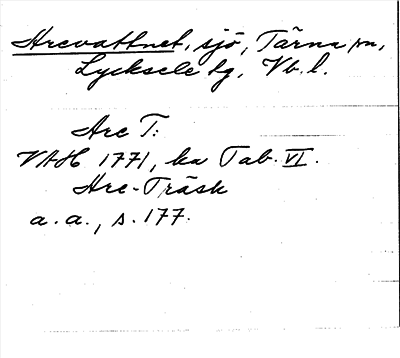 Arevattnet, sjö, Tärna sn,
Lycksele tg, Vb. l.
Are T:
VAH 1771, ka Tab. VI.
Are-Träsk
a. a., s. 177.